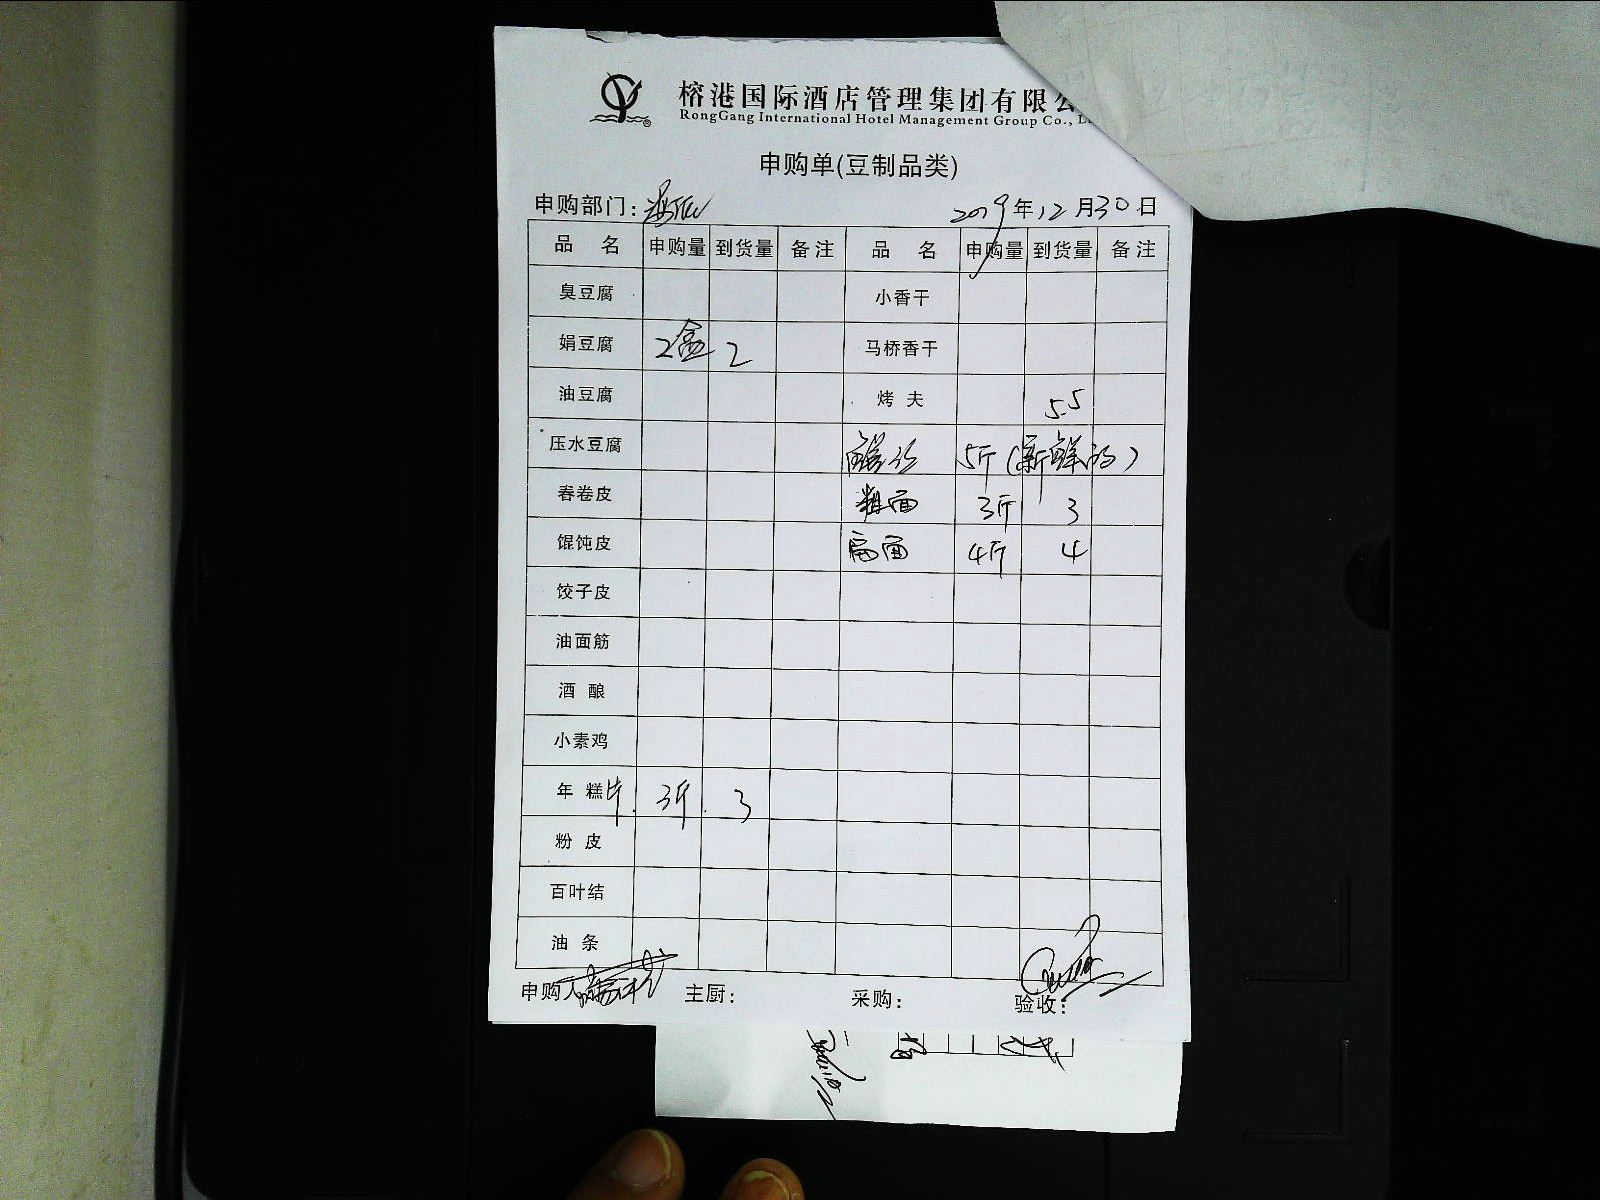 榕港国际酒店管理集团有限公
RongGang International Hotel Management Group Co., L
申购单(豆制品类)
申购部门: 2019年12月30日
品名 申购量 到货量 备注 品名 申购量 到货量 备注
臭豆腐 小香干
娟豆腐 2盒 2 马桥香干
油豆腐 烤夫 5.5
压水豆腐 5斤(新鲜的)
春卷皮 粗面 3斤 3
馄饨皮 扁面 4斤 4
饺子皮
油面筋
酒酿
小素鸡
年糕片 3斤 3
粉皮
百叶结
油条
申购人 主厨: 采购: 验收: